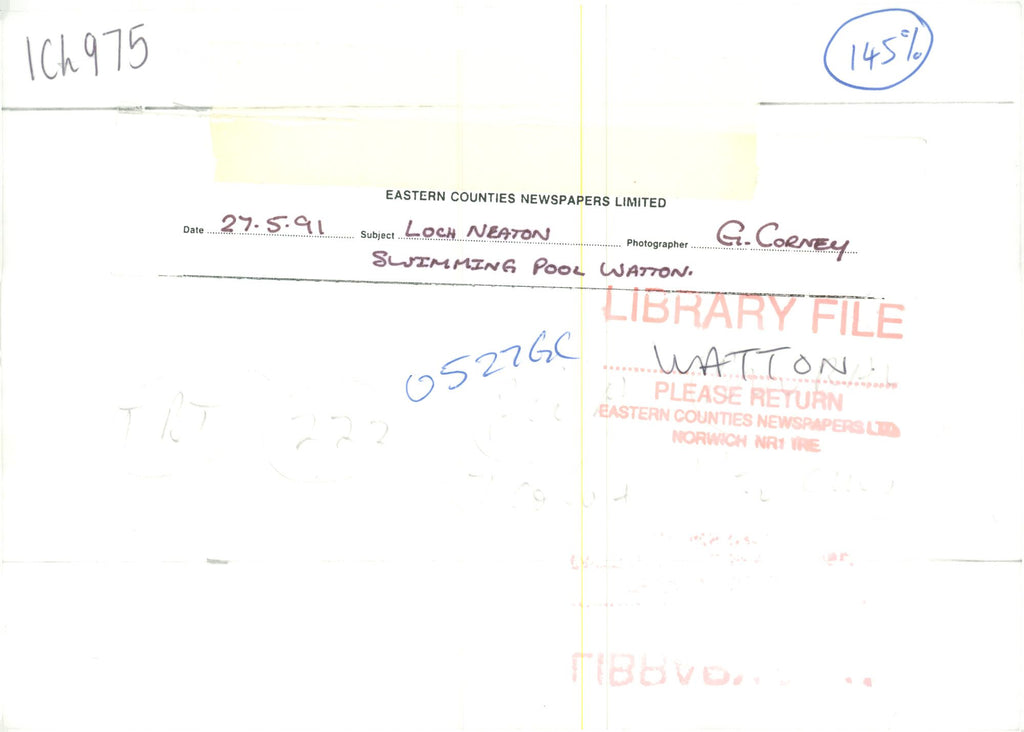 1Ch975
145%
EASTERN COUNTIES NEWSPAPERS LIMITED
Date 27.5.91 Subject LOCH NEATON Photographer G. CORNEY
SWIMMING POOL WATTON.
LIBRARY FILE
WATTON.
0527GC
PLEASE RETURN
EASTERN COUNTIES NEWSPAPERS LTD
NORWICH NR1 1RE
222